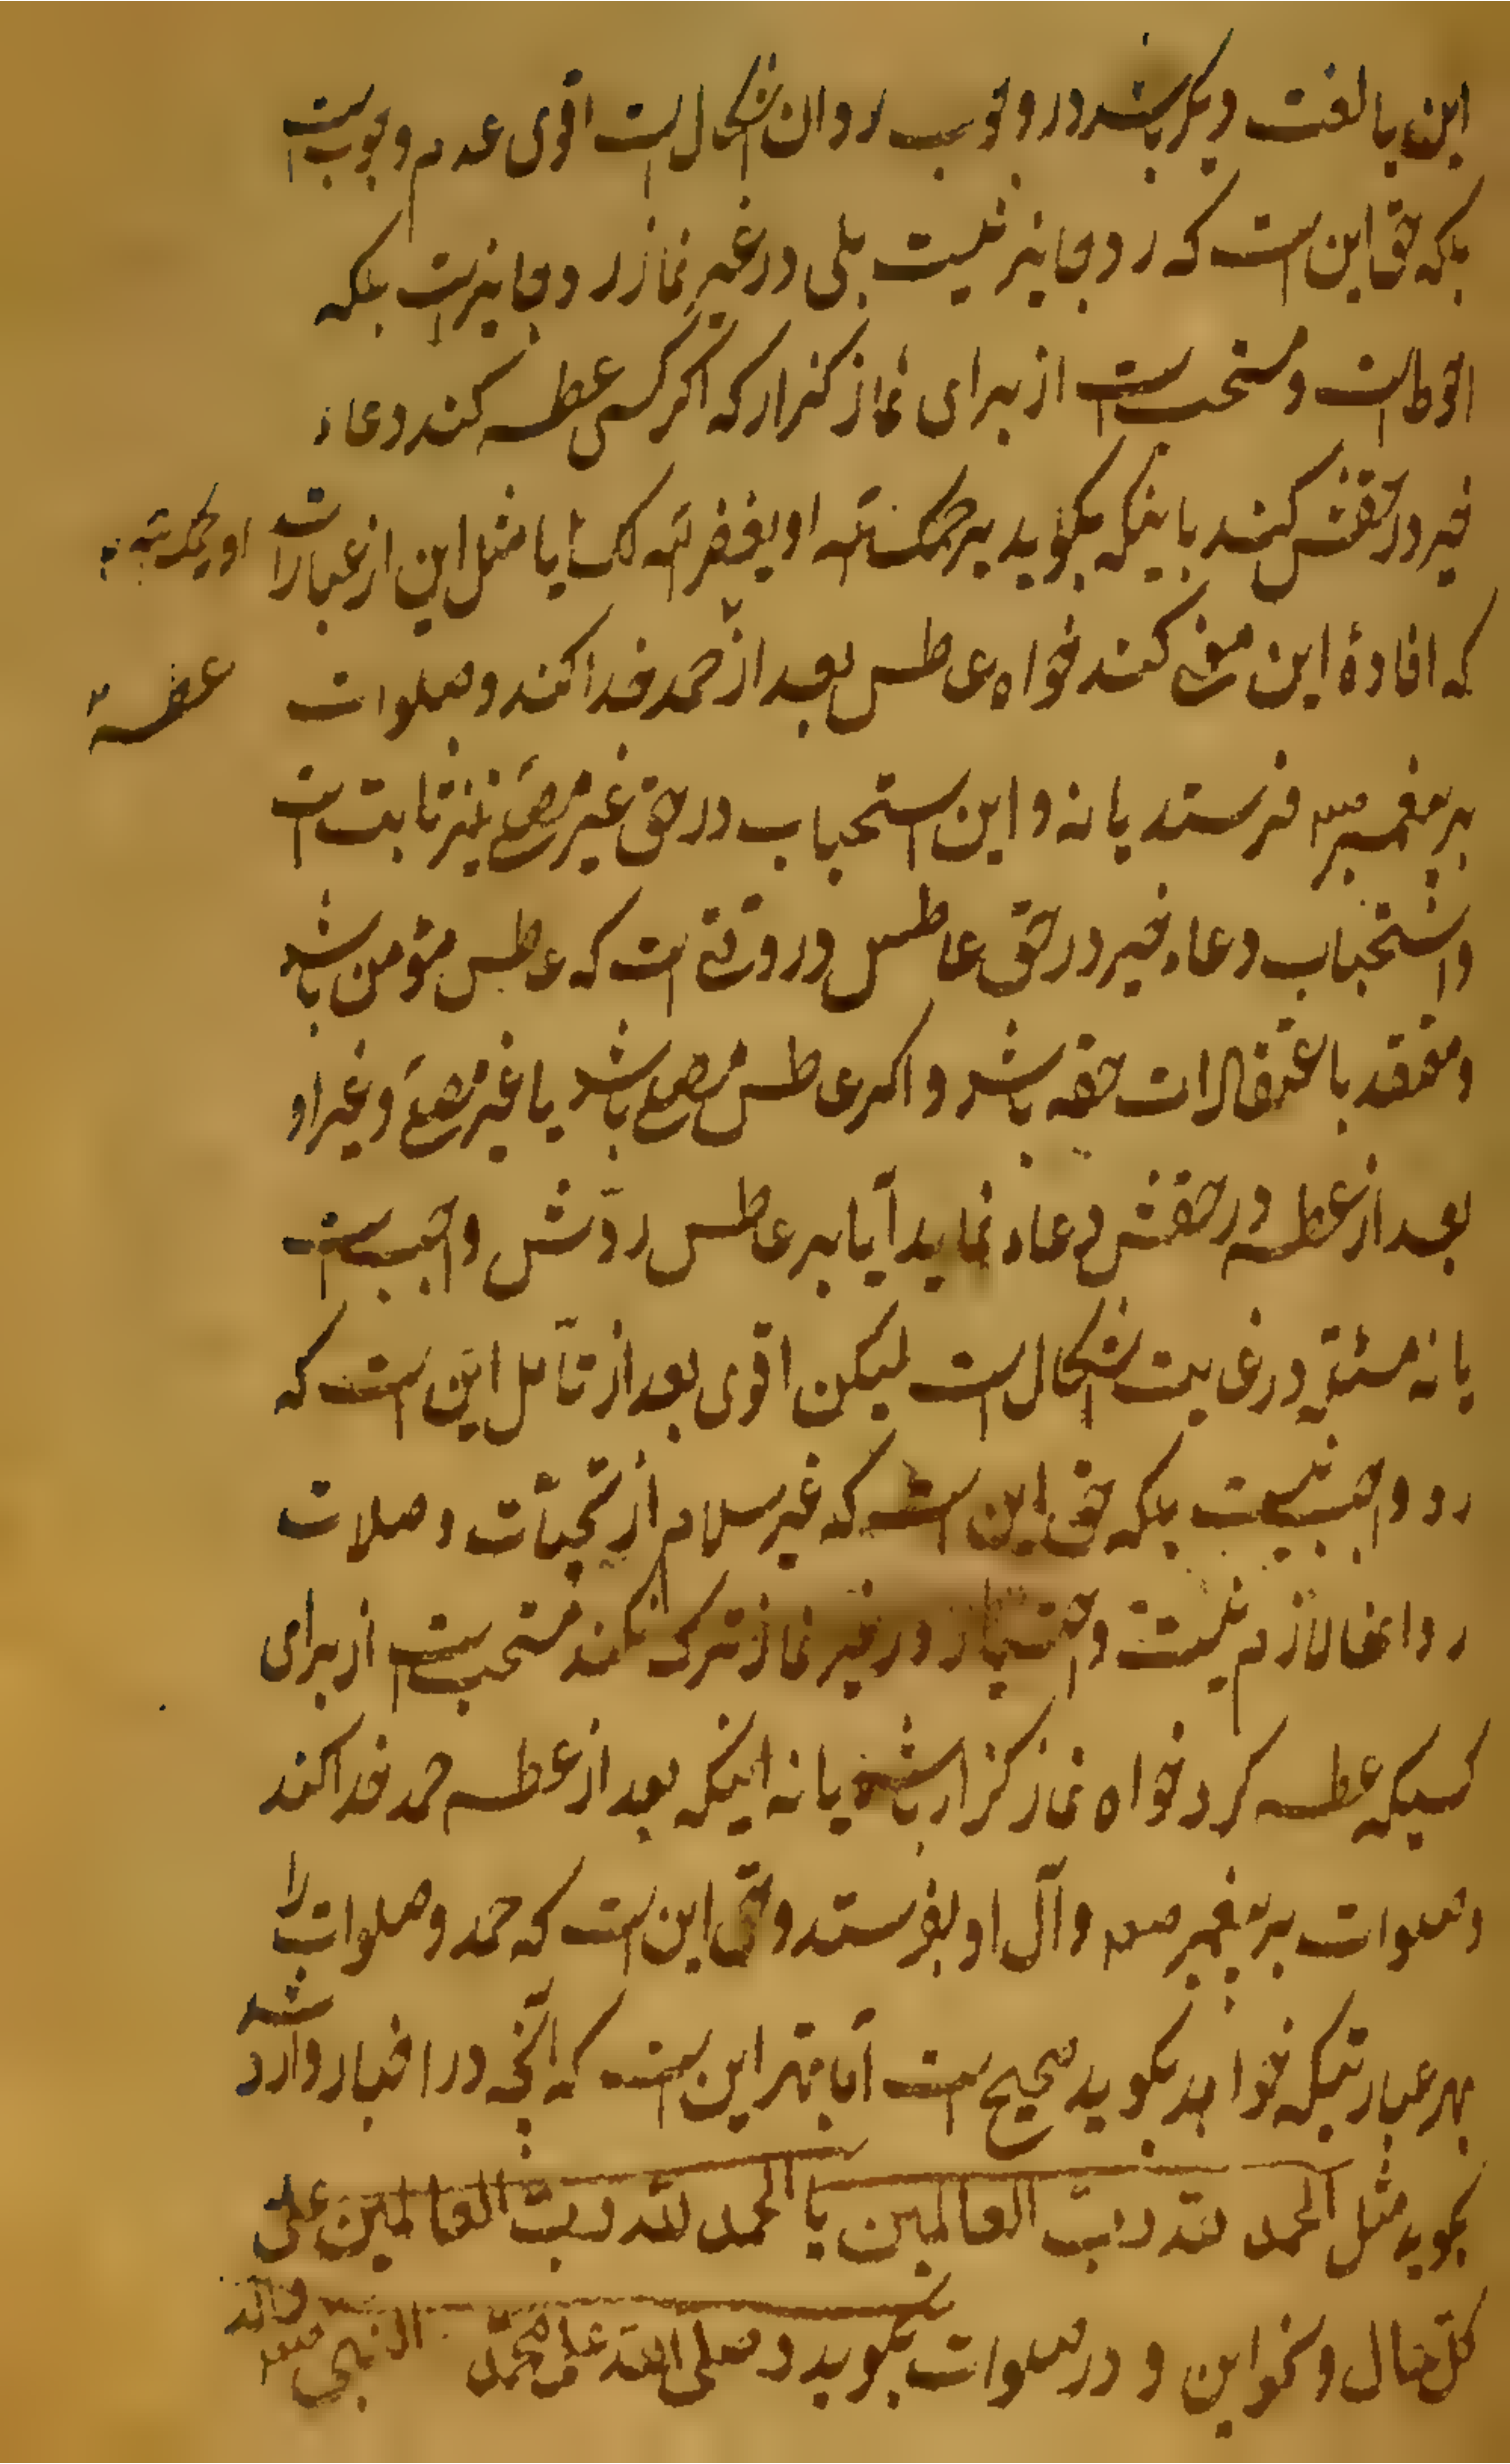 این یا لغت دیگر باشد در وجوب رد ان اشکال است اقوی عدم وجوب است
بلکه حق این است که رد جایز نیست بلی در غیر نماز رد جایز است بلکه
احوط است و مستحب است از برای نماز کذار که اکر کسی عطسه کند دعاء
خیر در حقش کند باینکه بکوید یرحمک الله او یغفر الله لک یا مثل این از عبارات
او یحمد الله
که افادهٔ این معنی کند خواه عاطس بعد از حمد خدا کند و صلوات
عطسه
بر پیغمبر ص فرستد یا نه و این استحباب در حق غیر مصلّی نیز ثابت است
و استحباب دعاء خیر در حق عاطس در وقتی است که عاطس مؤمن باشد
و معتقد باعتقادات حقه باشد و اکر عاطس مصلّی باشد یا غیر مصلّی و غیر او
بعد از عطسه در حقش دعاء نماید آیا بر عاطس ردّش واجب است
یا نه مسئله در غایت اشکال است لیکن اقوی بعد از تأمل این است که
رد واجب نیست بلکه حق این است که غیر سلام از تحیّات و صلات
رد انها لازم نیست و احتیاط در غیر نماز ترک نکند مستحب است از برای
کسیکه عطسه کرد خواه نماز کذار باشد یا نه اینکه بعد از عطسه حمد خدا کند
و صلوات بر پیغمبر ص و آل او بفرستد و حق این است که حمد و صلوات را
بهر عبارتیکه خواهد بکوید صحیح است امّا بهتر این است که آنچه در اخبار وارد شد
بکوید مثل الحمد لله ربّ العالمین یا الحمد لله ربّ العالمین علی
کلّ حال و نحو این و در صلوات بکوید و صلی الله علی محمّد النبی و آله ص